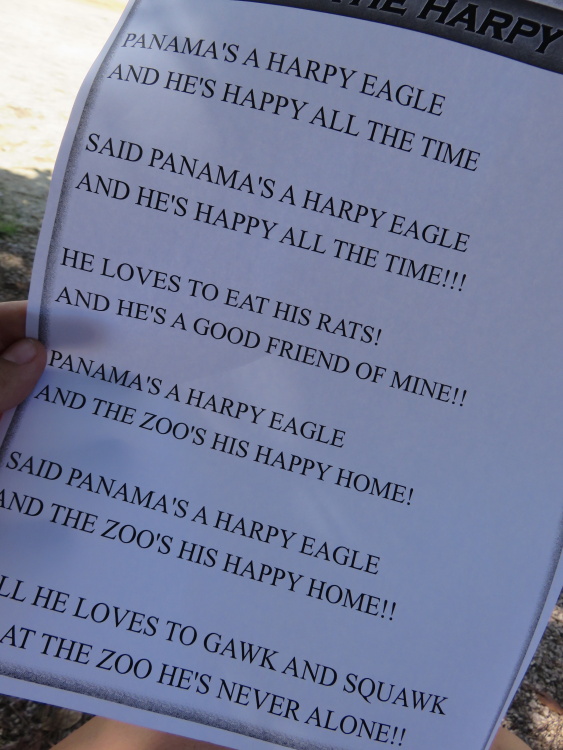 THE HARPY
PANAMA'S A HARPY EAGLE
AND HE'S HAPPY ALL THE TIME
SAID PANAMA'S A HARPY EAGLE
AND HE'S HAPPY ALL THE TIME!!!
HE LOVES TO EAT HIS RATS!
AND HE'S A GOOD FRIEND OF MINE!!
PANAMA'S A HARPY EAGLE
AND THE ZOO'S HIS HAPPY HOME!
SAID PANAMA'S A HARPY EAGLE
AND THE ZOO'S HIS HAPPY HOME!!
LL HE LOVES TO GAWK AND SQUAWK
AT THE ZOO HE'S NEVER ALONE!!